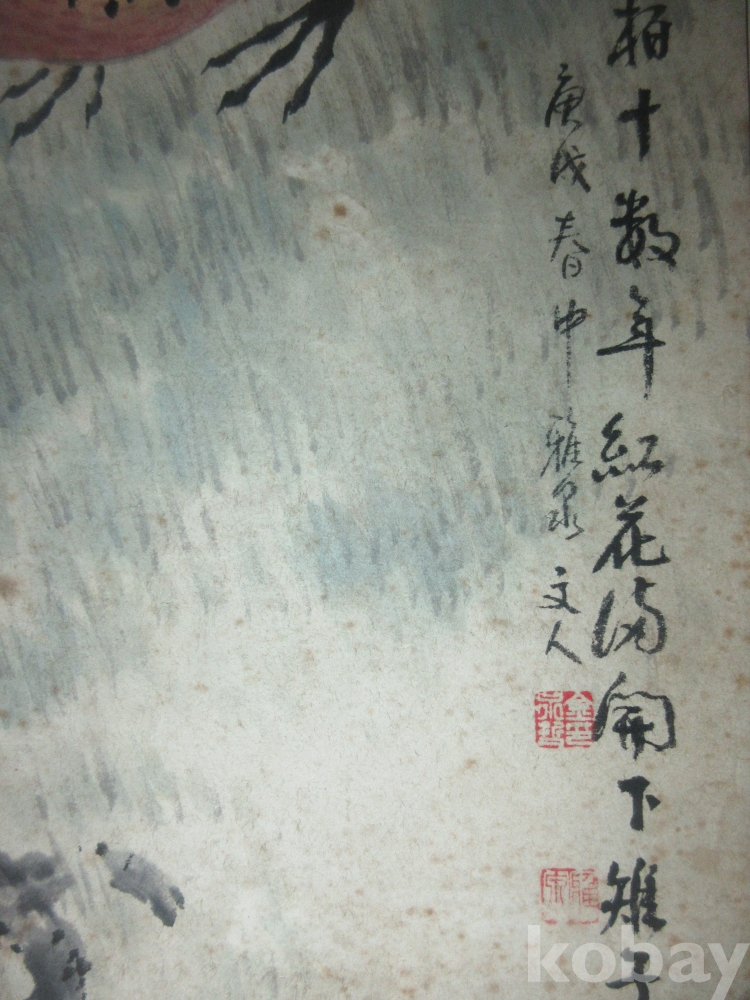 栢十數年紅花満開下雉子
庚戌春中雅泉文人
kobay